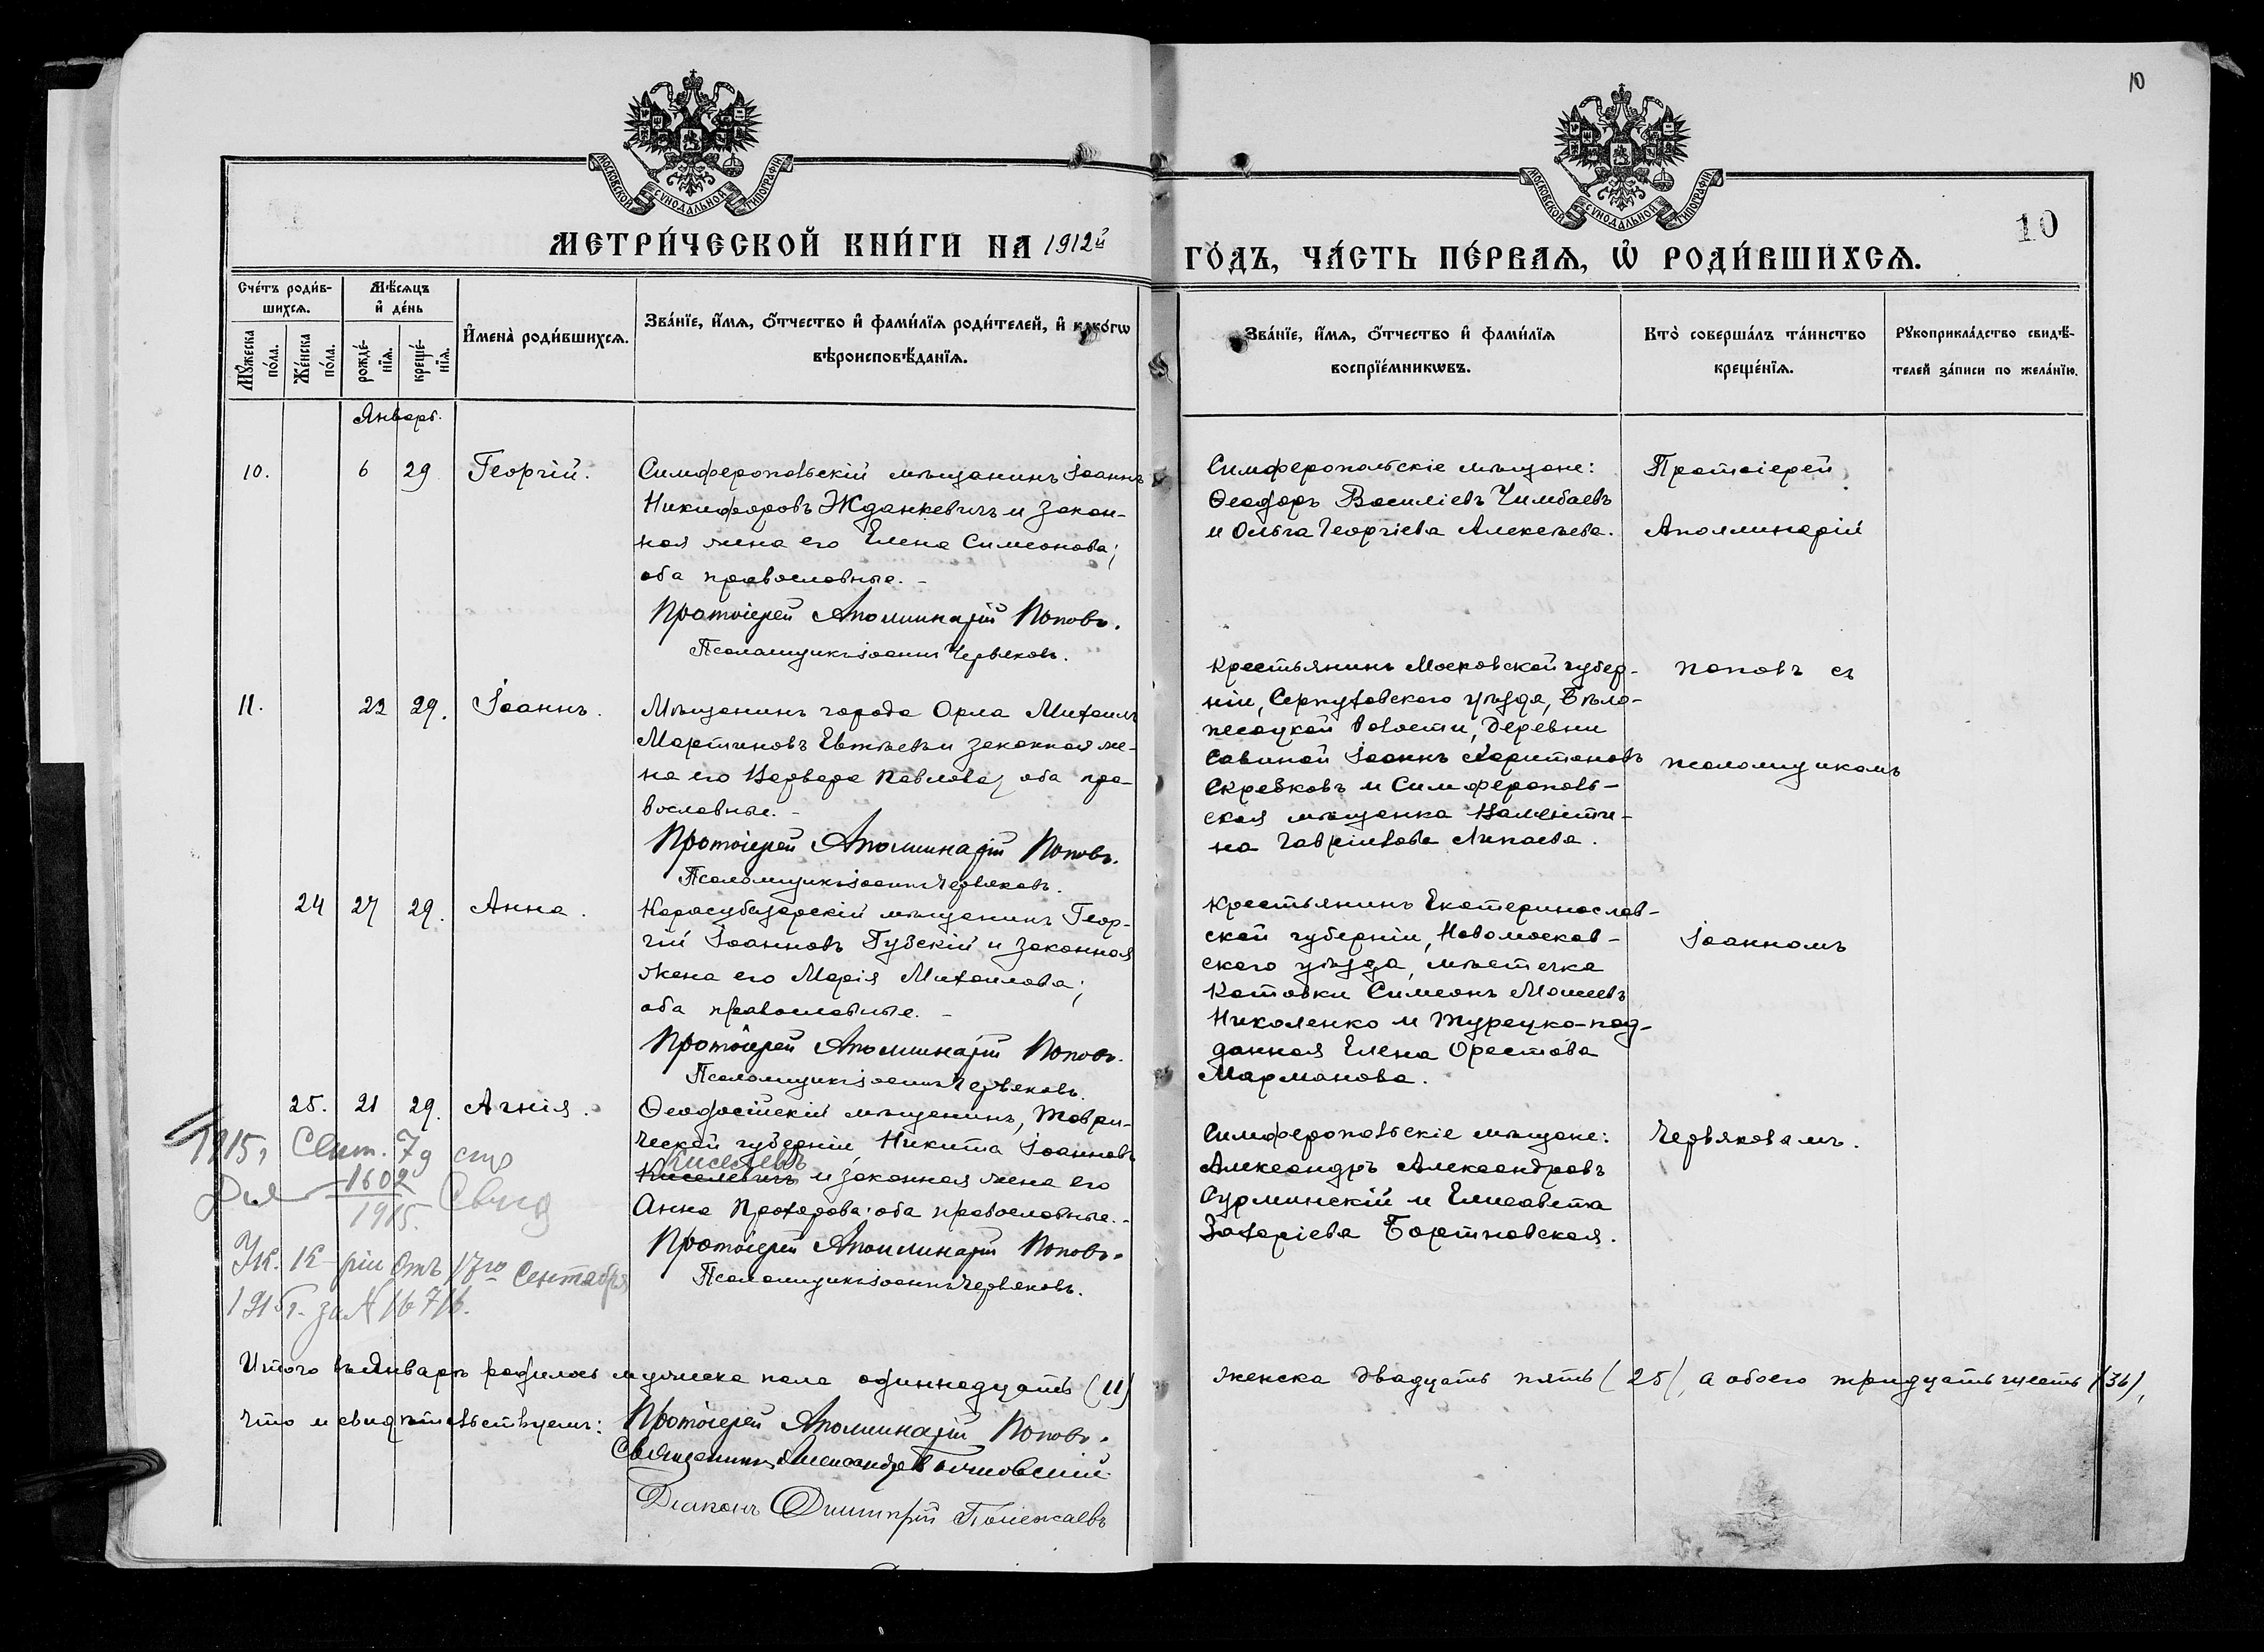 10
МОСКОВСКОЙ СѴНОДАЛЬНОЙ ТИПОГРАФІИ
МОСКОВСКОЙ СѴНОДАЛЬНОЙ ТИПОГРАФІИ
10
МЕТРИ́ЧЕСКОЙ КНИ́ГИ НА 1912й
ГО́ДЪ, ЧА́СТЬ ПЕ́РВАѦ, Ѡ҆ РОДИ́ВШИХСѦ.
Сче́тъ роди́в-
шихсѧ.
Мѣ́сѧцъ
и҆ де́нь
Мꙋ́жеска
по́ла.
Же́нска
по́ла.
рожде́-
нїѧ.
креще́-
нїѧ.
И҆мена̀ роди́вшихсѧ.
Зва́нїе, и҆́мѧ, ѻ҆́тчество и҆ фами́лїѧ роди́телей, и҆ како́гѡ
вѣроисповѣ́данїѧ.
Зва́нїе, и҆́мѧ, ѻ҆́тчество и҆ фами́лїѧ
воспрїе́мникѡвъ.
Кто̀ соверша́лъ та́инство
креще́нїѧ.
Рꙋкоприкла́дство свидѣ́-
телей за́писи по жела́нїю.
Январь.
10.
6
29
Георгій.
Симферопольскій мѣщанинъ Іоаннъ
Никифоровъ Жданкевичъ и закон-
ная жена его Елена Симеонова;
оба православные. -
Протоіерей Аполлинарій Поповъ.
Псаломщикъ Іоаннъ Червяковъ.
Симферопольскіе мѣщане:
Ѳеодоръ Василіевъ Чимбаевъ
и Ольга Георгіева Алексѣева.
Протоіерей
Аполлинарій
11.
22
29.
Іоаннъ.
Мѣщанинъ города Орла Михаилъ
Мартиновъ Евтѣевъ и законная же-
на его Варвара Павлова, оба пра-
вославные. -
Протоіерей Аполлинарій Поповъ.
Псаломщикъ Іоаннъ Червяковъ.
Крестьянинъ Московской губер-
ніи, Серпуховского уѣзда, Бѣло-
песоцкой волости, деревни
Савиной Іоаннъ Харитоновъ
Скребковъ и Симферополь-
ская мѣщанка Валенти-
на Гавріилова Липаева.
Поповъ съ
псаломщикомъ
24
27
29.
Анна.
Карасубазарскій мѣщанинъ Геор-
гій Іоанновъ Гузскій и законная
жена его Марія Михаилова;
оба православные. -
Протоіерей Аполлинарій Поповъ.
Псаломщикъ Іоаннъ Червяковъ.
Крестьянинъ Екатеринослав-
ской губерніи, Новомосков-
ского уѣзда, мѣстечка
Котовки Симеонъ Моисеевъ
Николенко и турецко-под-
данная Елена Орестова
Марманова.
Іоанномъ
25.
21
29.
Агнія.
Ѳеодосійскій мѣщанинъ, Таври-
ческой губерніи, Никита Іоанновъ
Киселевъ
Киселевичъ и законная жена его
Анна Прохорова; оба православные. -
Протоіерей Аполлинарій Поповъ.
Псаломщикъ Іоаннъ Червяковъ.
Симферопольскіе мѣщане:
Александръ Александровъ
Сурминскій и Елисавета
Захаріева Бортновская.
Червяковымъ.
1915г Сент. 7д
1602
1915. Свид
Ук. К-ріи отъ 17го Сентября
1915г. за № 16716.
Итого въ Январѣ родилось мужеска пола одиннадцать (11)
женска двадцать пять (25), а обоего тридцать шесть (36),
Что и свидѣтельствуемъ: Протоіерей Аполлинарій Поповъ.
Священникъ Александръ
Діаконъ Димитрій Полежаевъ